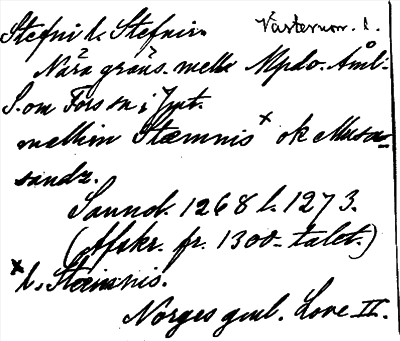 Stefni l. Stefnir Västernorr. l.
Nära gräns. mell. Mpd o. Ång.
S. om Fors sn i Jmt.
mællim Stæmnis x ok Musa-
sundz.
Sannol. 1268 l. 1273.
(Afskr. fr. 1300-talet.)
x l. Stæinnis.
Norges gml. Love II.